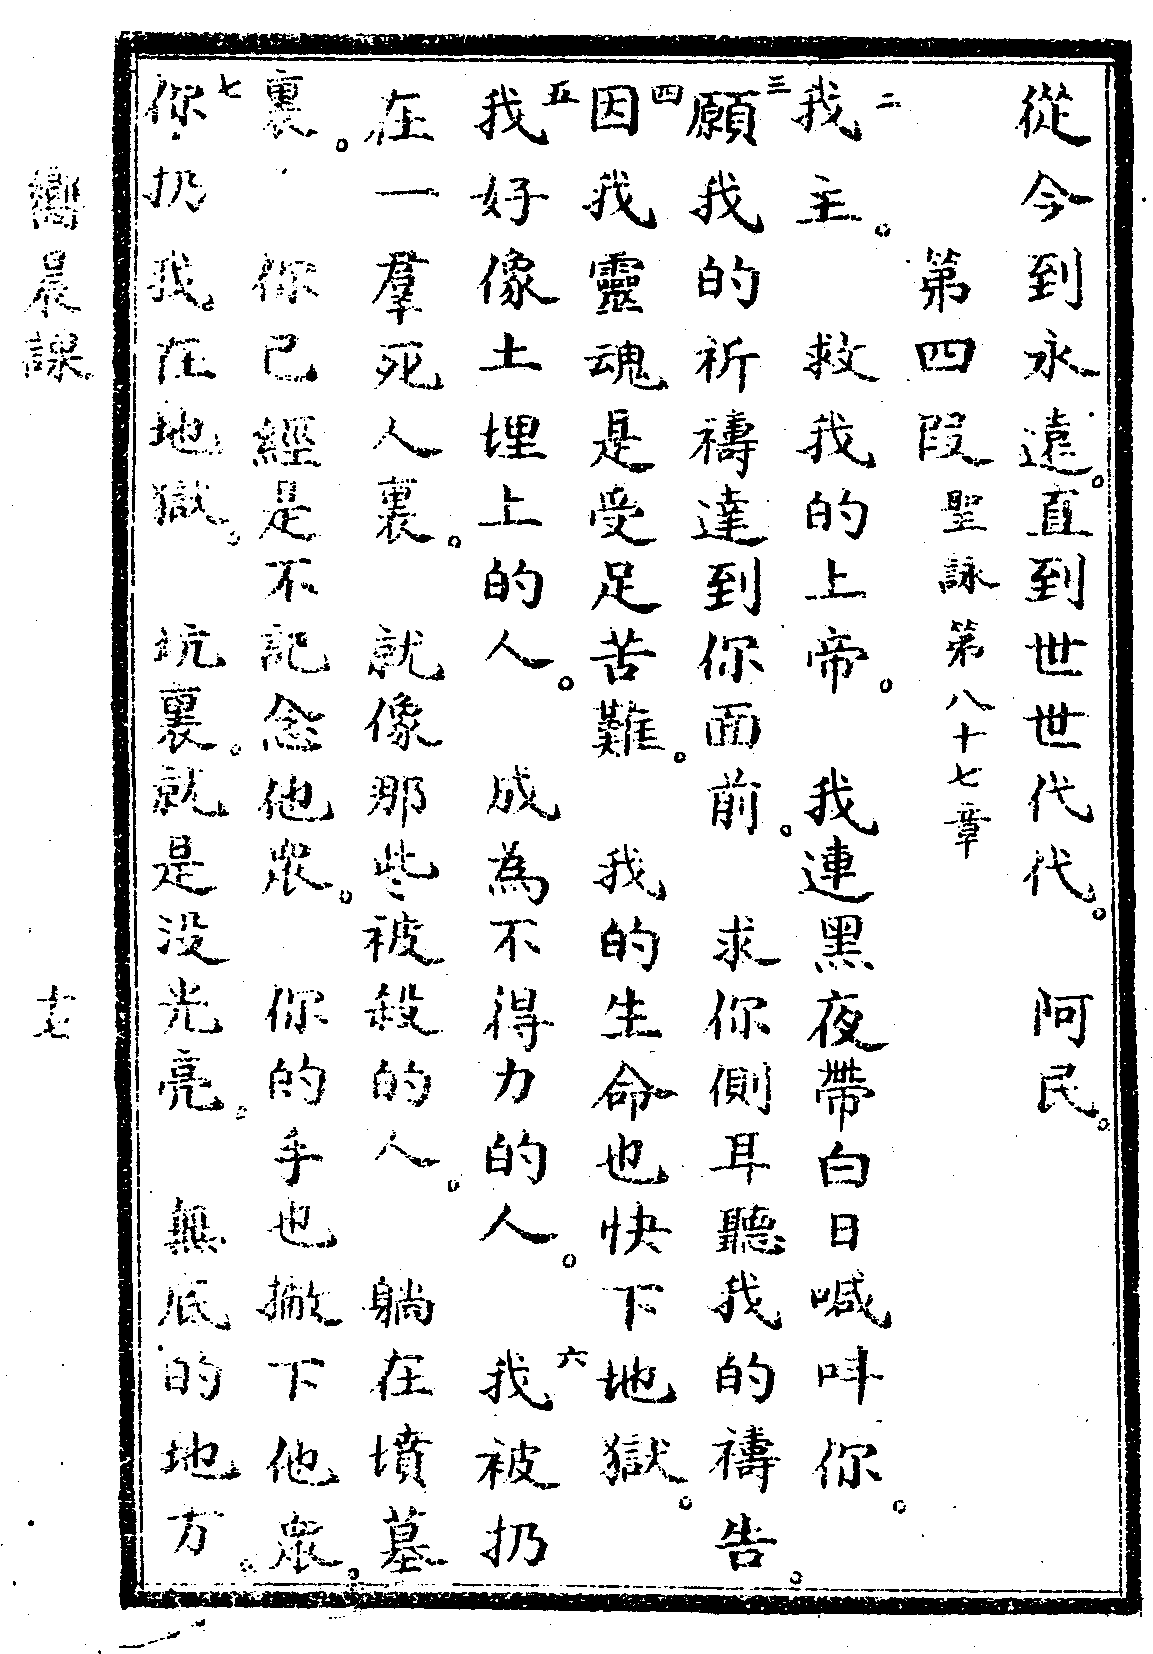 從今到永遠。直到世世代代。 阿民。
第四段 聖詠第八十七章
二 我主。 救我的上帝。 我連黑夜帶白日喊呌你。
三 願我的祈禱達到你面前。 求你側耳聽我的禱告。
四 因我靈魂是受足苦難。 我的生命也快下地獄。
五 我好像土埋上的人。 成為不得力的人。 六 我被扔
在一羣死人裏。 就像那些被殺的人。 躺在墳墓
裏。 你已經是不記念他衆。 你的手也撇下他衆。
七 你扔我。在地獄。 坑裏。就是没光亮。 無底的地方。
嚮晨課 十七